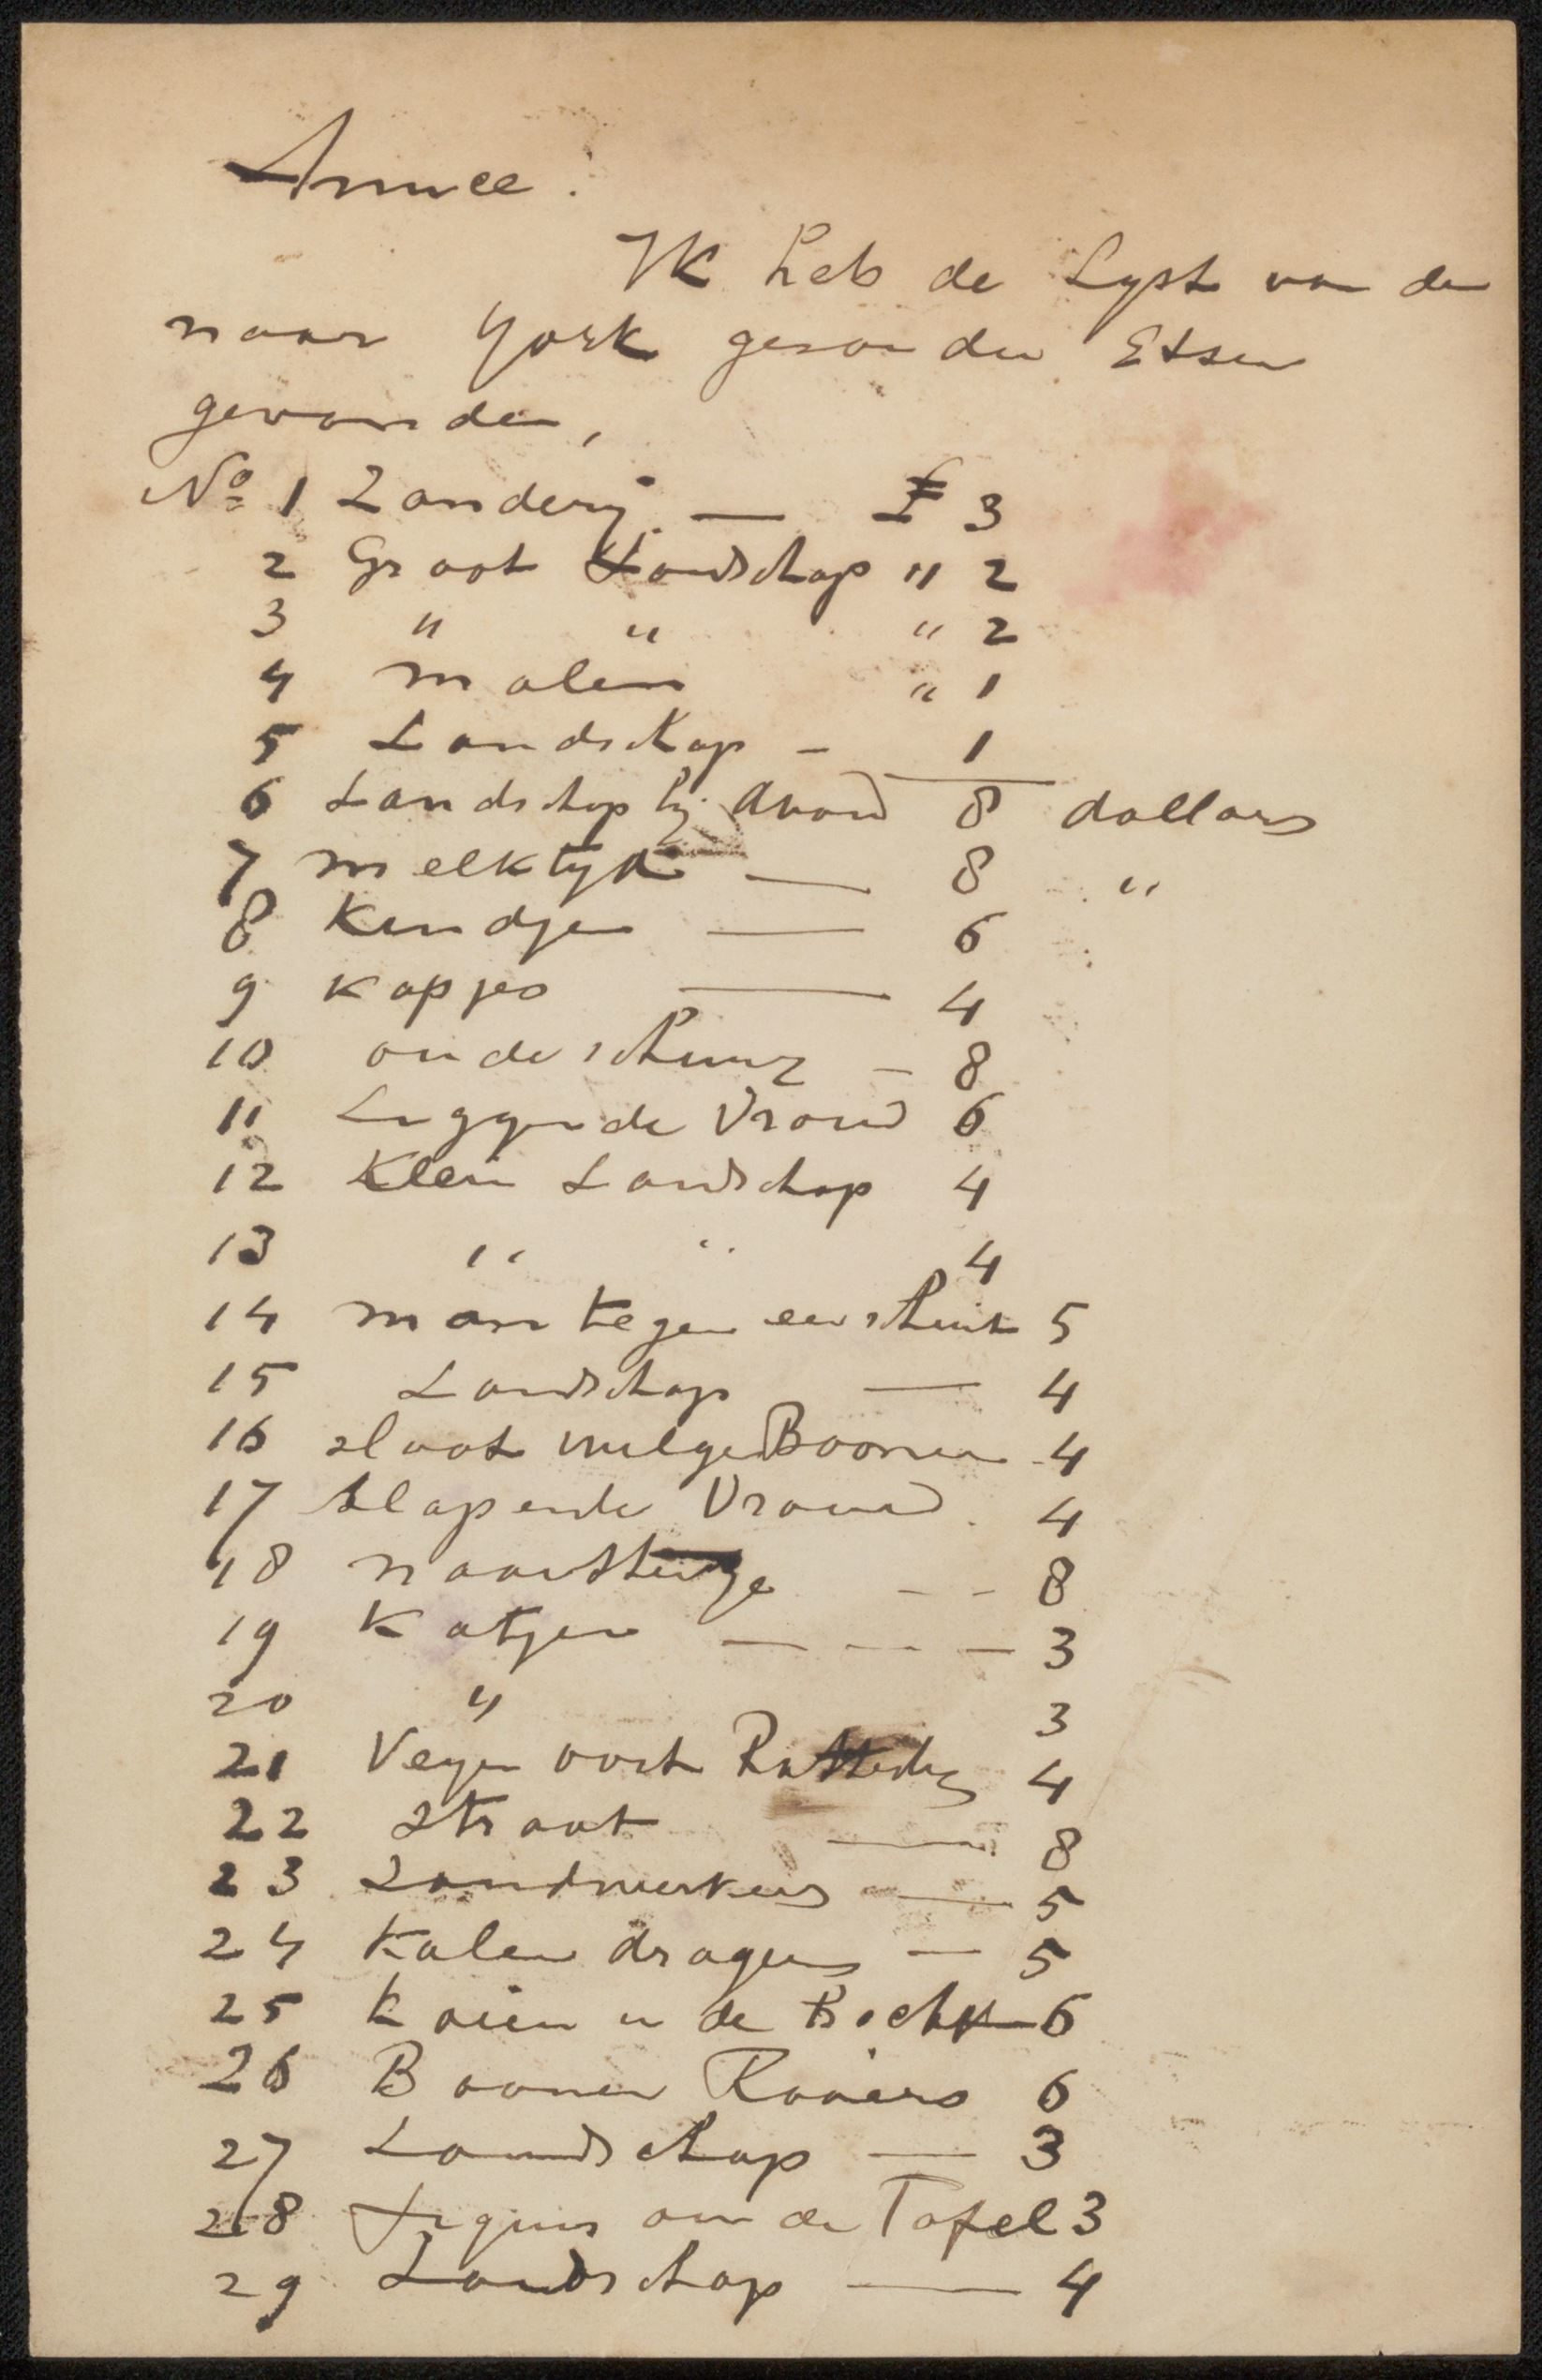 Amice.
Ik heb de Lyst van de
naar York gezonden Etsen
gevonden,
Nº 1 Zandery. — £ 3
2 Groot Landschap " 2
3 " " " 2
4 molen " 1
5 Landschap - 1
6 Landschap by Avond 8 dollars
7 melktyd — 8 "
8 Kindjen — 6
9 Kopjes — 4
10 oude schuur - 8
11 Liggende Vrouw 6
12 Klein Landschap 4
13 " " 4
14 man tegen een schuit 5
15 Landschap — 4
16 sloot wilgen Boomen - 4
17 slapende Vrouw. 4
18 - - 8
19 Katjen — - - — 3
20 " 3
21 4
22 Straat — 8
23 Zandwerkers — 5
24 Kolen dragers — 5
25 Koeien in de Bocht — 6
26 Boomen Rooiers 6
27 Landschap — 3
28 Figuur aan de Tafel 3
29 Landschap — 4